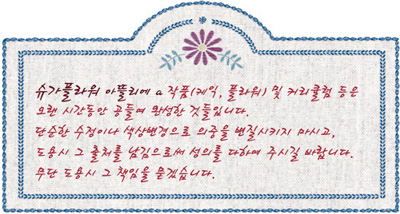 슈가플라워 아뜰리에 a 작품(케익, 플라워) 및 커리큘럼 등은
오랜 시간동안 공들여 완성한 것들입니다.
단순한 수정이나 색상변경으로 의중을 변질시키지 마시고,
도용시 그 출처를 남김으로써 성의를 다하여 주시길 바랍니다.
무단 도용시 그 책임을 묻겠습니다.